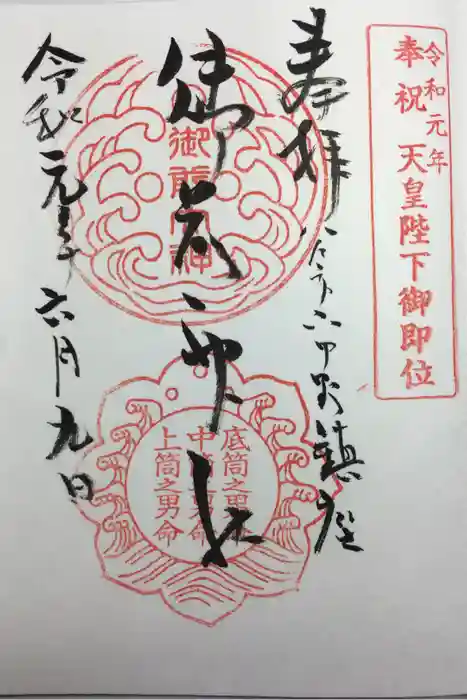 令和元年
奉祝 天皇陛下御即位
奉拝
鎮座
御前神社
底筒之男命
中筒之男命
上筒之男命
令和元年六月九日